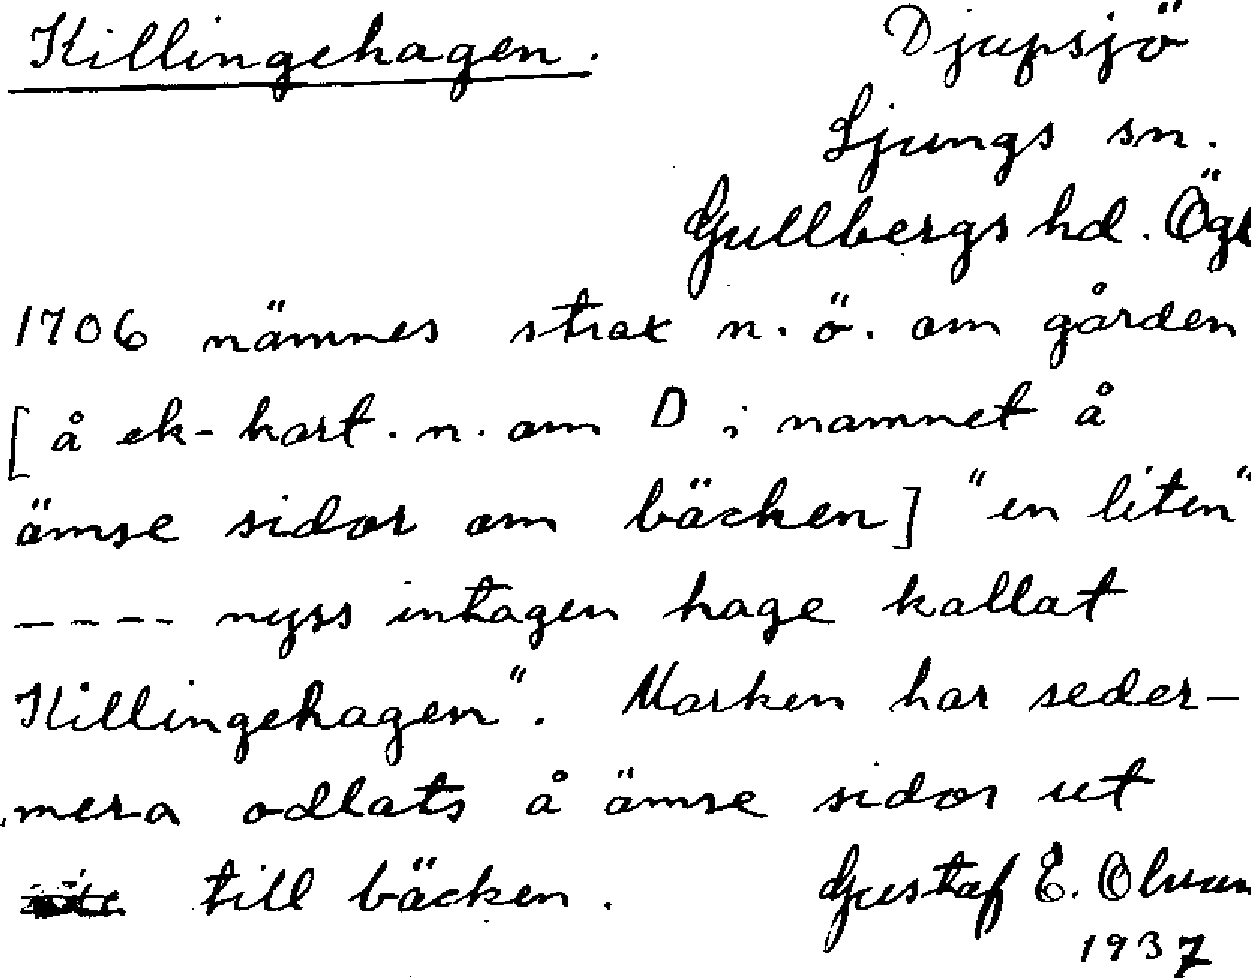 Killingehagen.
Djupsjö
Ljungs sn.
Gullbergs hd. Ögl
1706 nämnes strax n. ö. om gården
[å ek-kart. n. om D i namnet å
ömse sidor om bäcken] "en liten"
---- nyss intagen hage kallat
Killingehagen". Marken har seder-
mera odlats å ömse sidor ut
till bäcken.
Gustaf E. Olsson
1937